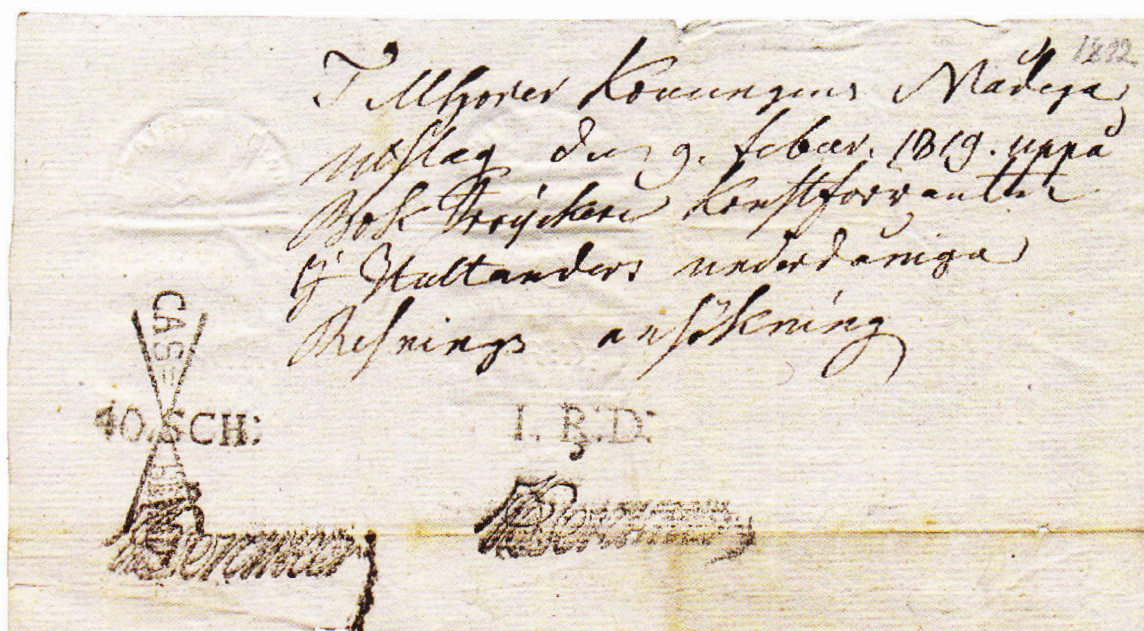 1832
Tillhörer Konungens Nådiga
utslag den 9. febuar. 1819. uppå
Bok Tryckeri Konstförvanten
Hultanders underdåniga
Resnings ansökning
CAS=
40. SCH:
1. R:D: